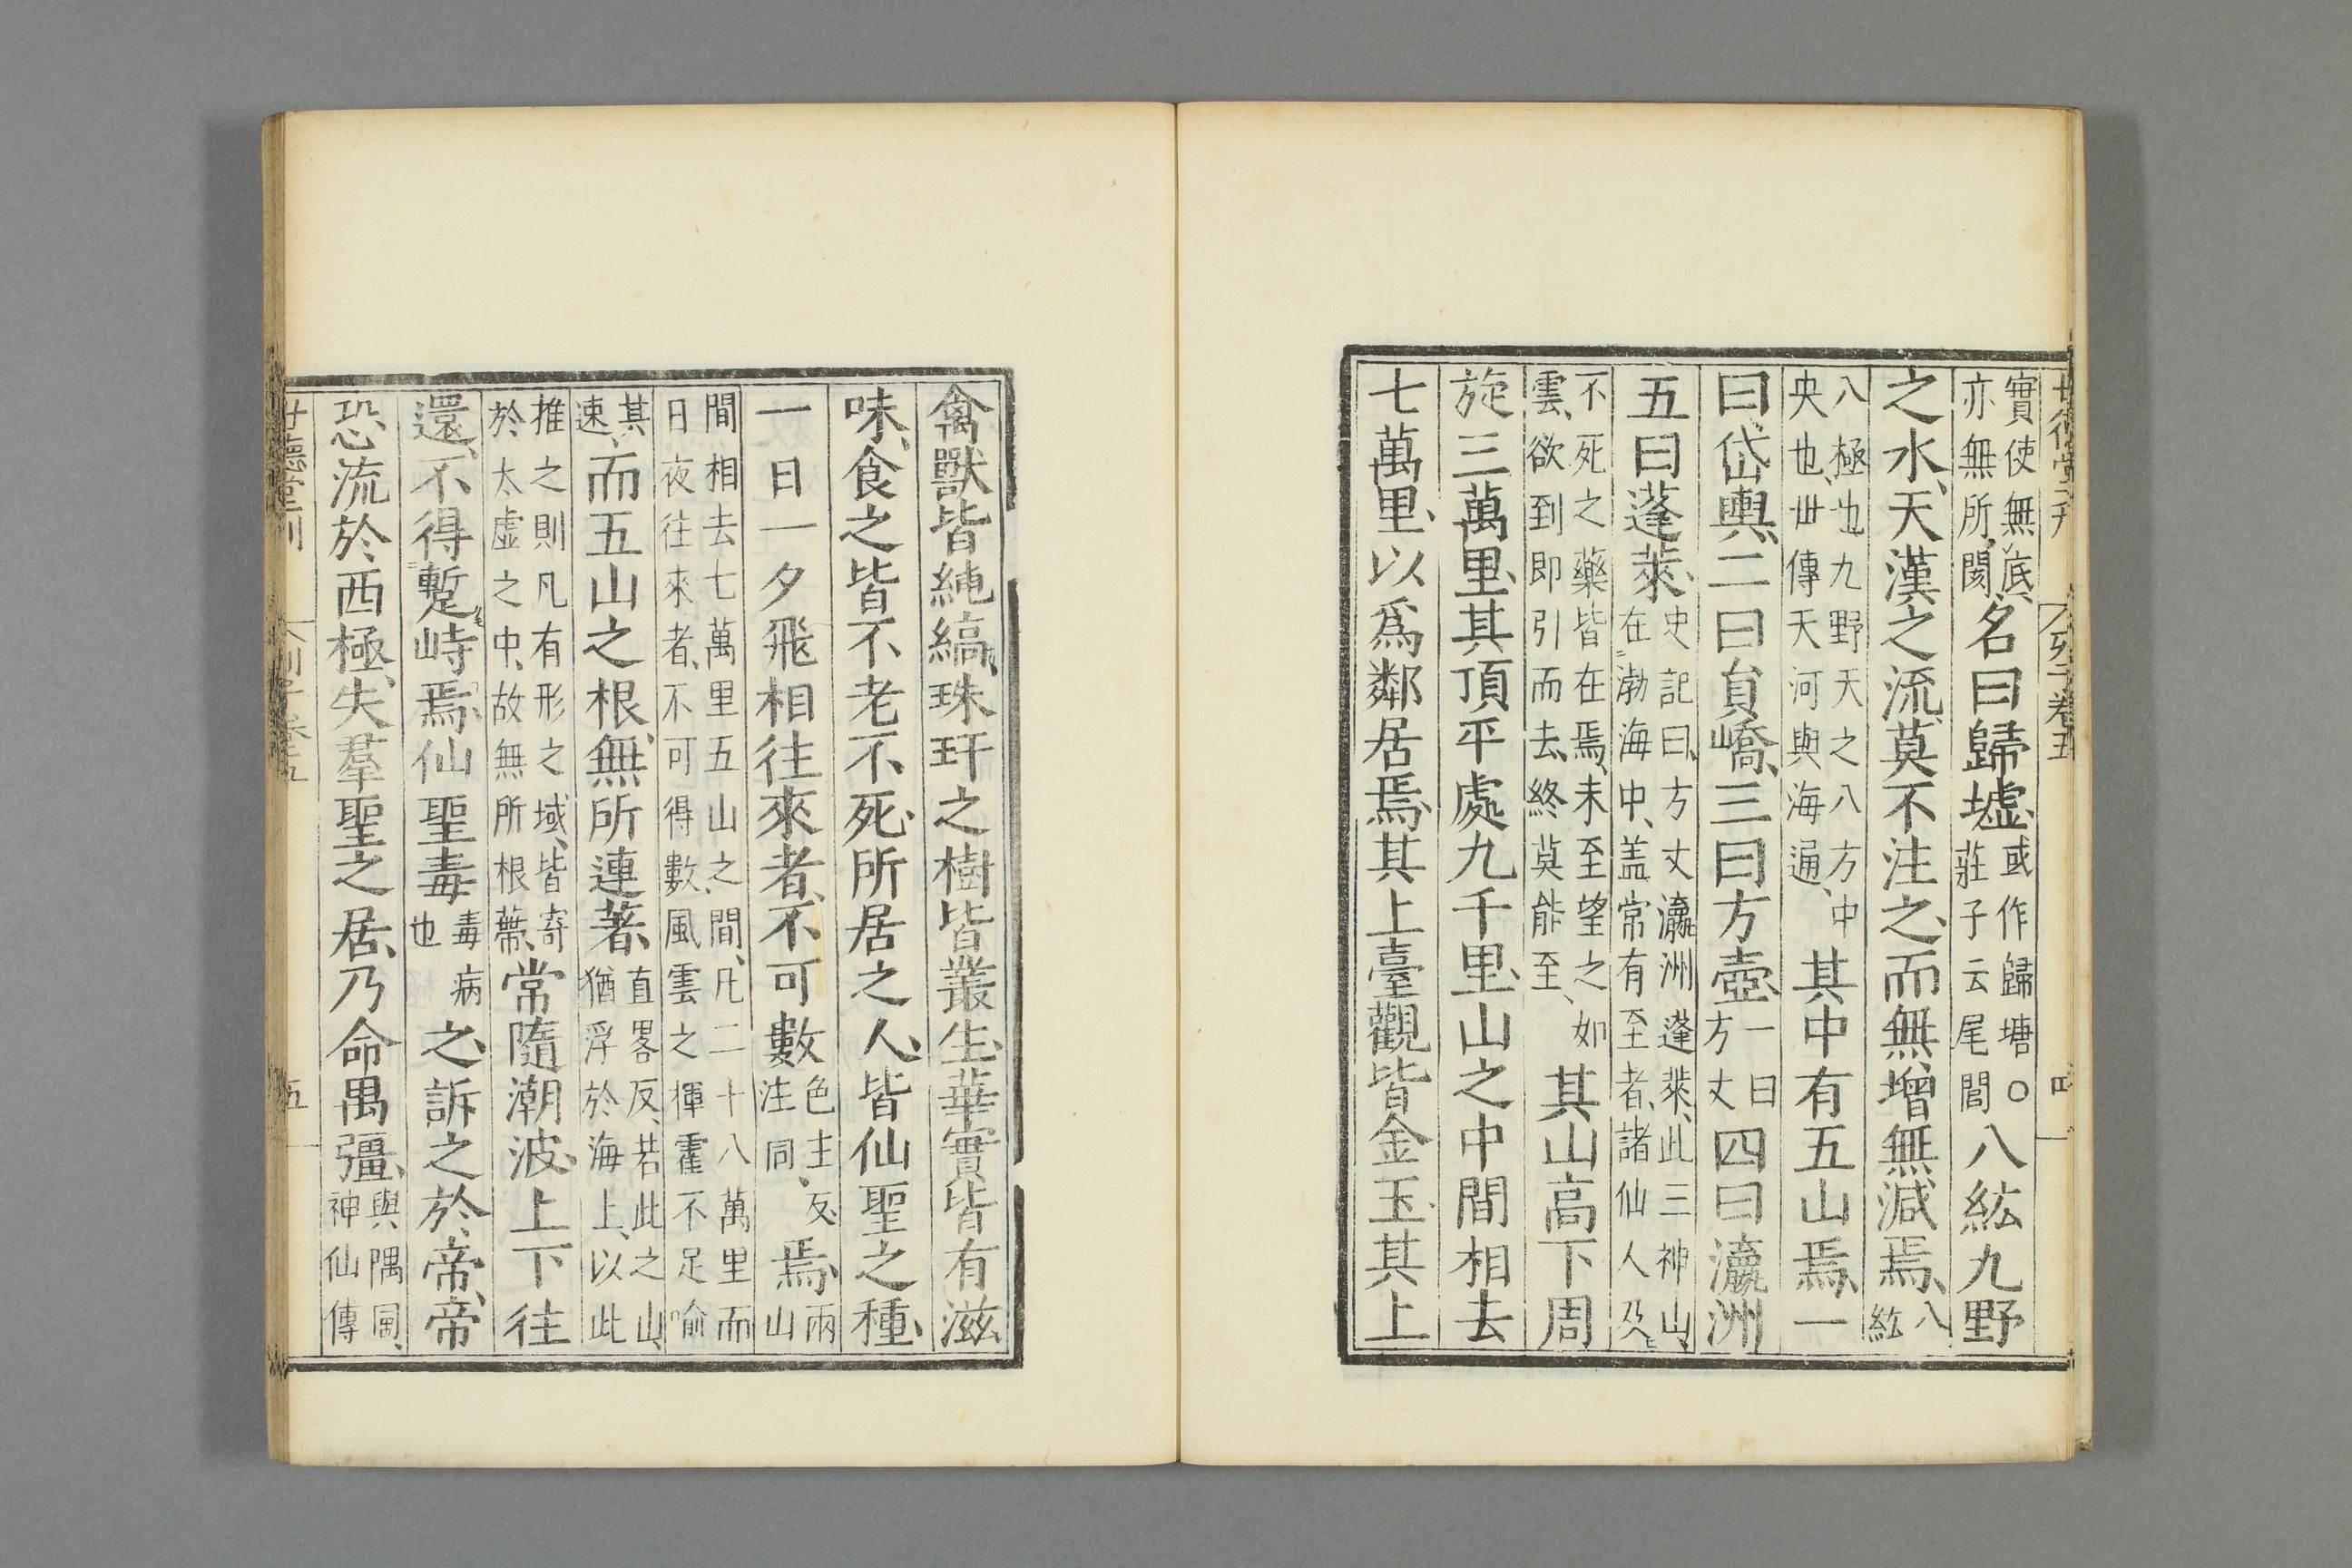 卷五 四
實使無底、亦無所閡、名曰歸墟、或作歸塘〇莊子云尾閭八紘九野
之水、天漢之流、莫不注之、而無、增無、減焉、八紘
八極也九野天之八方中央也、世傳天河與海通、其中有五山焉、一
曰、岱輿、二曰員嶠、三曰方壺、一曰方丈四曰瀛洲
五曰蓬萊、史記曰、方丈瀛洲蓬萊、此三神山、在渤海中、盖常有至者、諸仙人及
不死之藥皆在焉、未至望之如雲、欲到即引而去、終莫能至、其山高下周
旋三萬里、其頂平處九千里、山之中間相去
七萬里、以爲鄰居焉、其上臺觀皆金玉、其上
禽獸皆純縞、珠玕之樹皆叢生、華實皆有滋
味、食之皆不老不死、所居之人、皆仙聖之種、
一日一夕飛相往來者、不可數色主反、注同、焉、兩山
間相去七萬里五山之間、凡二十八萬里而日夜往來者、不可得數、風雲之揮霍不足喻
其速、而五山之根、無所連著、直畧反、若此之山、猶浮於海上、以此
推之則凡有形之域、皆寄於太虛之中、故無所根蔕、常隨潮波、上下往
還、不得蹔峙焉、仙聖毒毒病也之、訴之於帝、帝
恐流於西極、失羣聖之居、乃命禺彊、與隅同、神仙傳
世德堂刊 列子卷五 五